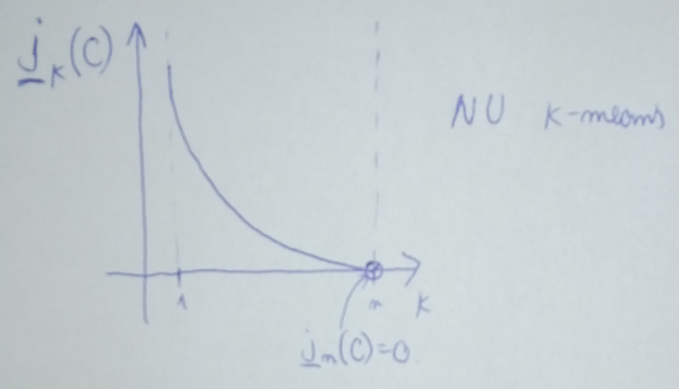 j_k(C)
NU k-means
1 n k
j_n(C)=0